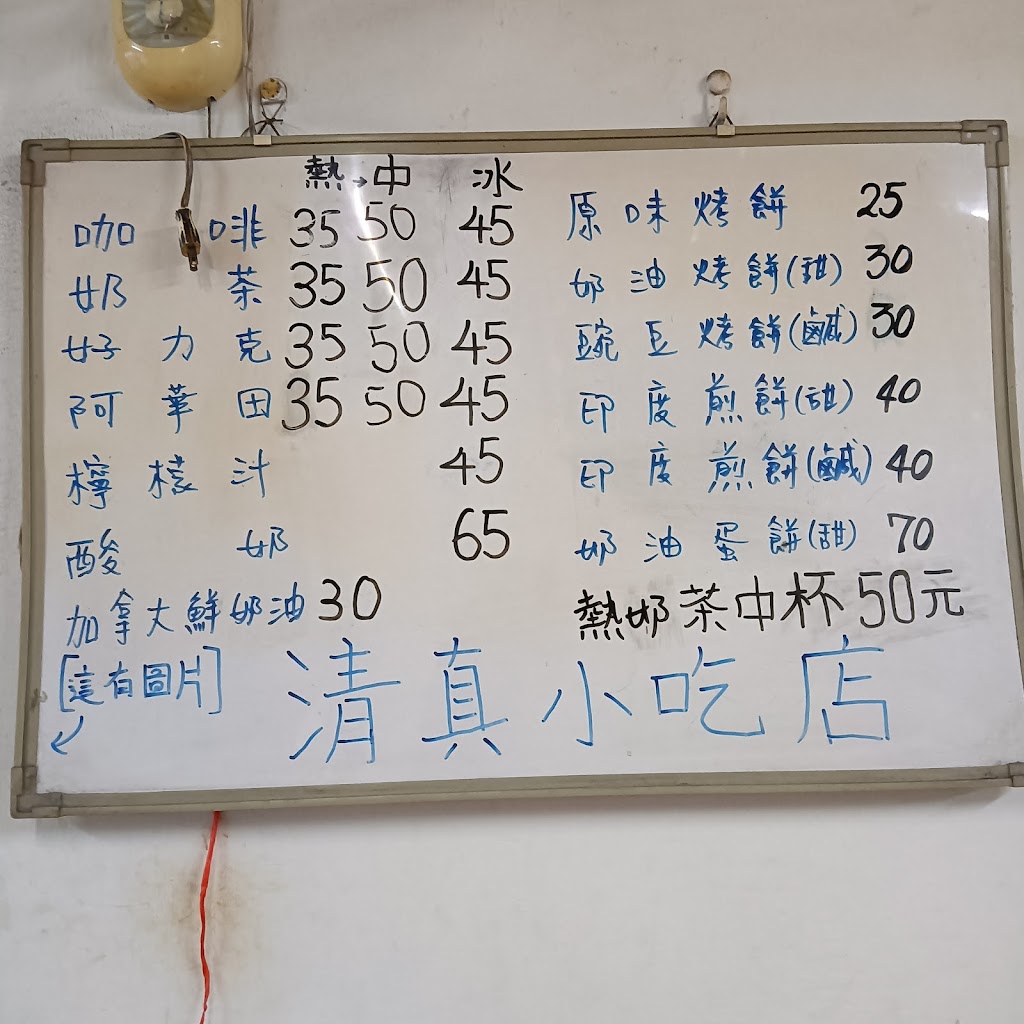 熱→中 冰
咖啡 35 50 45
奶茶 35 50 45
好力克 35 50 45
阿華田 35 50 45
檸檬汁 45
酸奶 65
加拿大鮮奶油 30
[這有圖片]
原味烤餅 25
奶油烤餅(甜) 30
豌豆烤餅(鹹) 30
印度煎餅(甜) 40
印度煎餅(鹹) 40
奶油蛋餅(甜) 70
熱奶茶中杯50元
清真小吃店